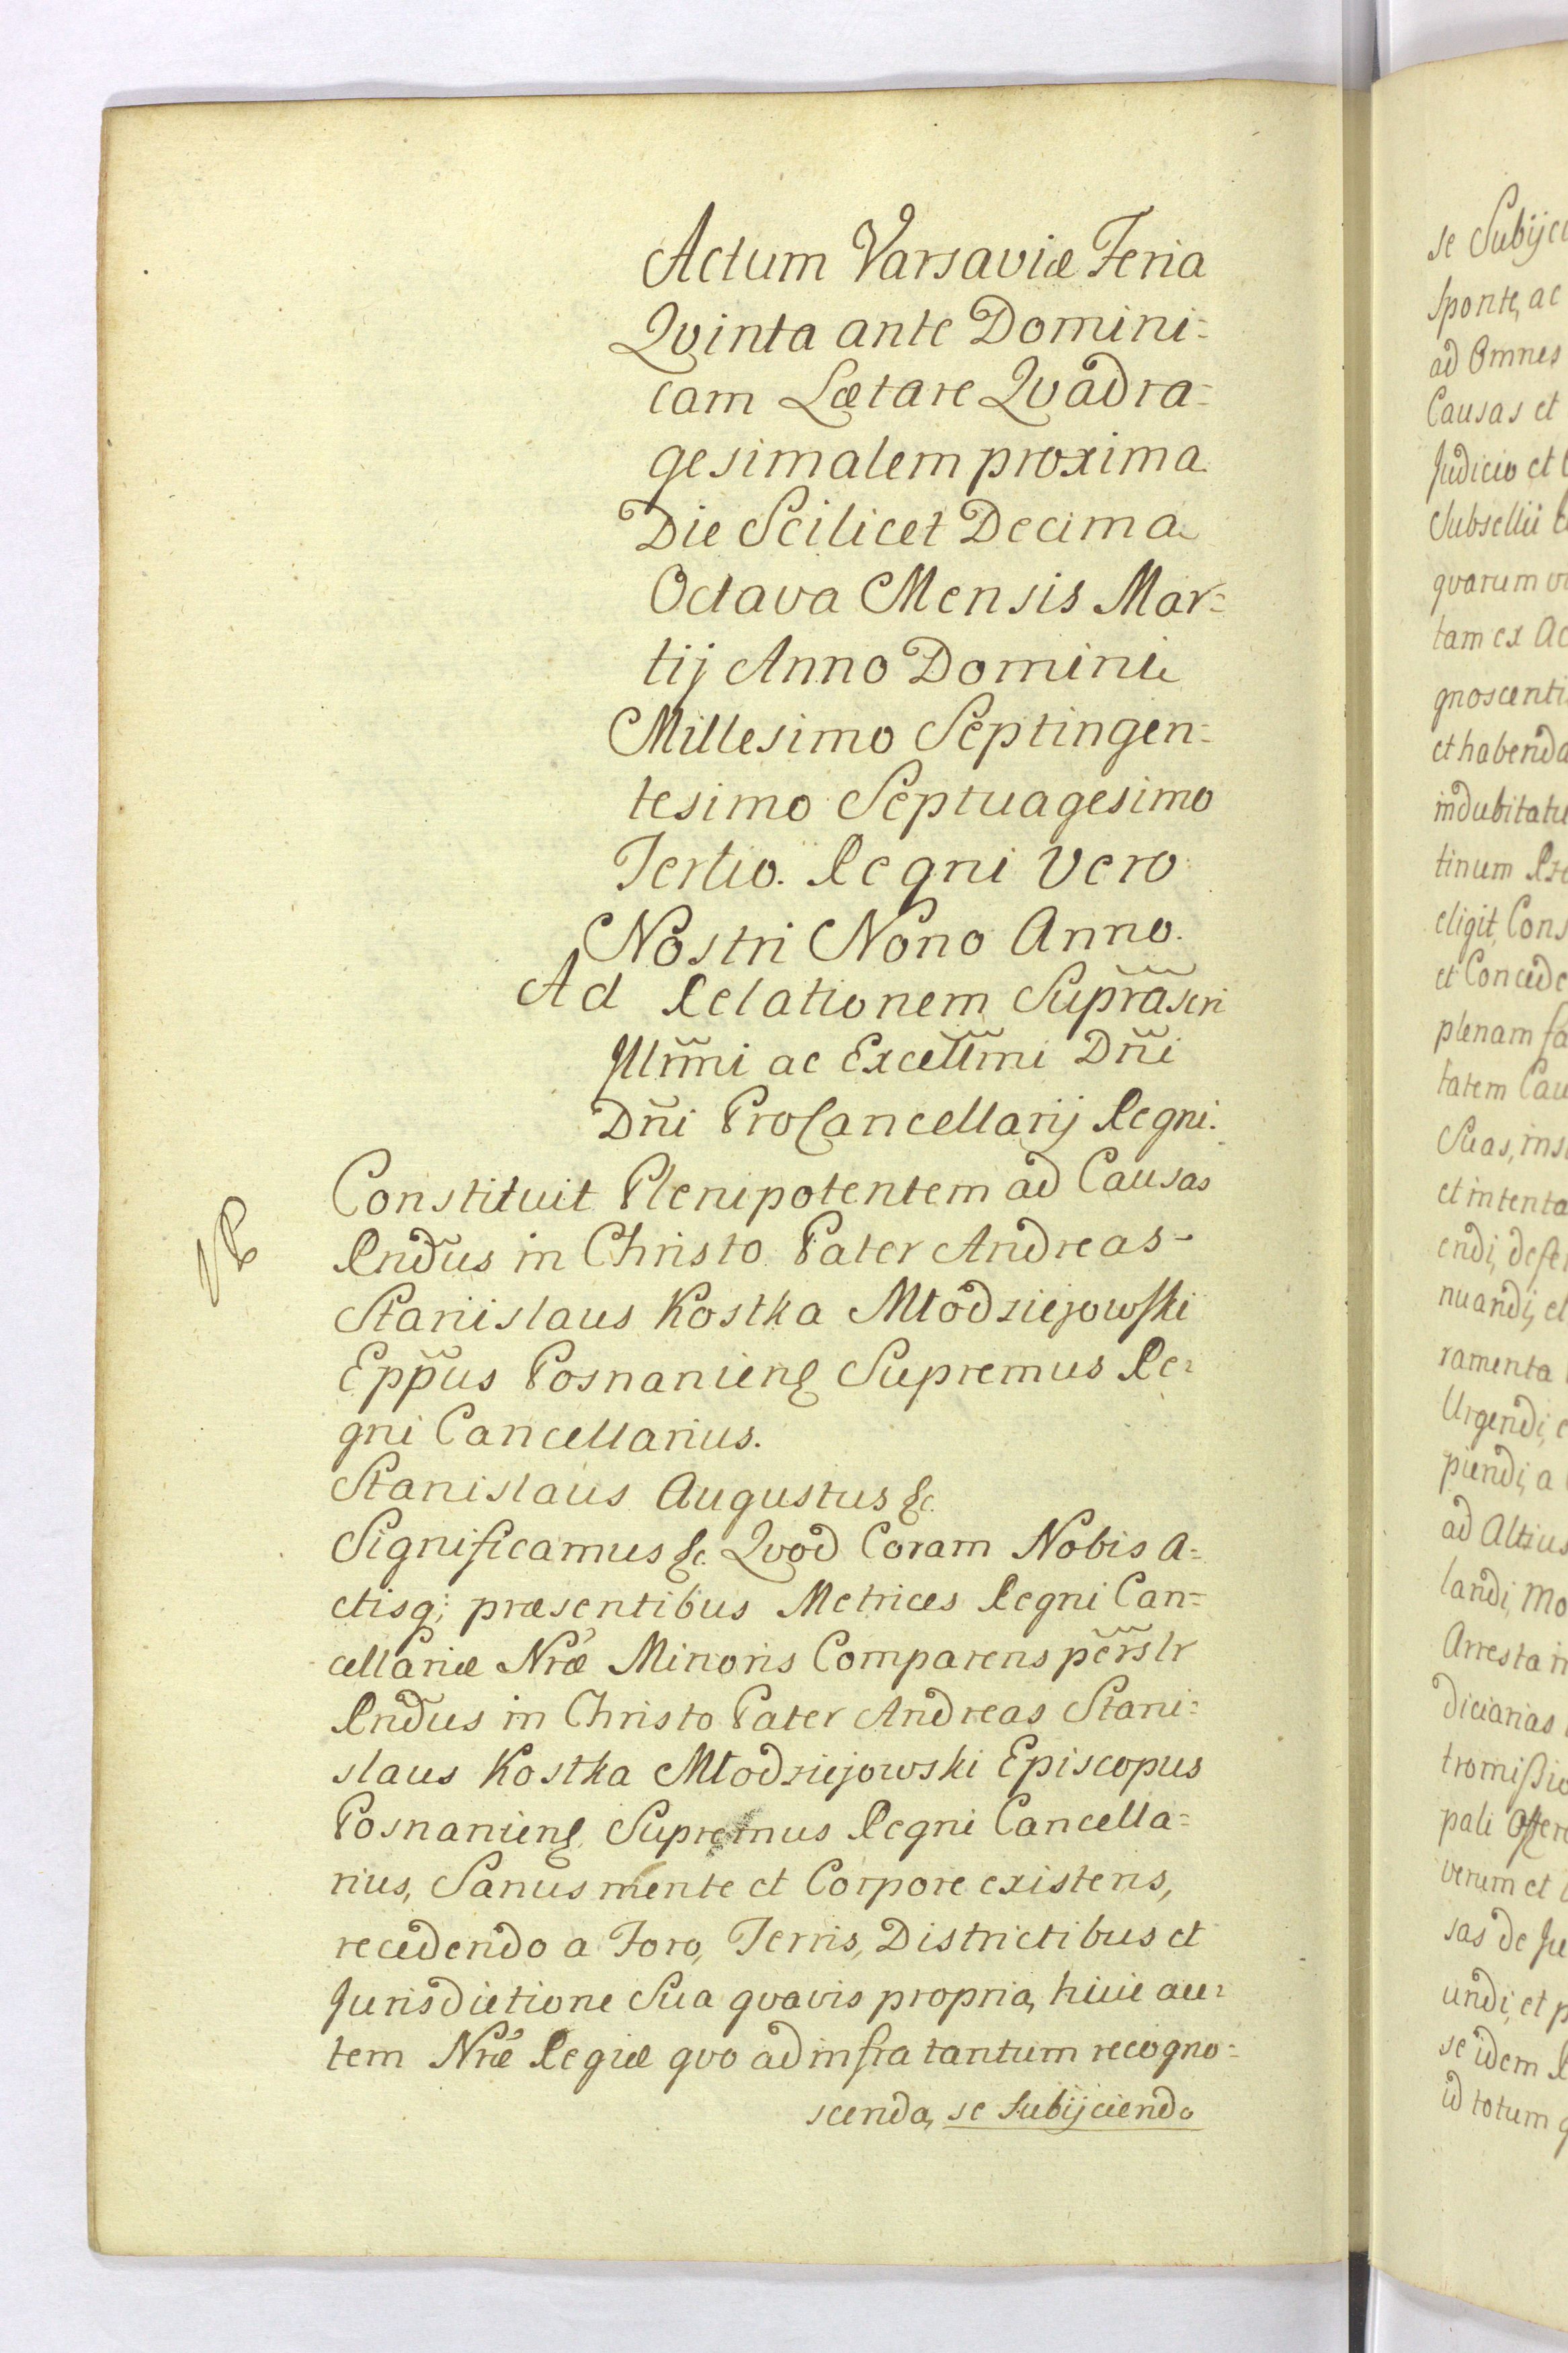 Actum Varsaviæ Feria
Qvinta ante Domini=
cam Lætare Qvadra=
gesimalem proxima
Die Scilicet Decima
Octava Mensis Mar=
tij Anno Domini
Millesimo Septingen=
tesimo Septuagesimo
Tertio. Regni Vero
Nostri Nono Anno.
Ad Relationem Supr̃ascri
Jllm̃i ac Excellm̃i Dñi
Dñi ProCancellarij Regni.
NB
Constituit Plenipotentem ad Causas
Rnd̃us in Christo Pater Andreas
Stanislaus Kostka Młodziejowski
Epp̃us Posnanienẞ Supremus Re=
gni Cancellarius.
Stanislaus Augustus &c.
Significamus &c. Qvod Coram Nobis A=
ctisq; præsentibus Metrices Regni Can=
cellariæ Nræ Minoris Comparens per̃slr
Rnd̃us in Christo Pater Andreas Stani=
slaus Kostka Młodziejowski Episcopus
Posnanienẞ Supremus Regni Cancella=
rius, Sanus mente et Corpore existens,
recedendo a Foro, Terris, Districtibus et
Jurisdictione Sua qvavis propria, huic au=
tem Nræ Regiæ qvo ad infra tantum recogno=
scenda, se subijciendo
se Subijci
sponte, ac
ad Omnes
Causas et
Judicio et
Subsellii
qvarum
tam ex Ac
gnoscenti
et habenda
indubitatu
tinum
eligit, Cons
et Concede
plenam fa
tatem Cau
Suas, ins
et intenta
endi, defe
nuandi, et
ramenta
Urgendi,
piendi, a
ad Altius
landi, Mo
Arresta
diciarias
tromissio
pali Offere
verum et
sas de Ju
undi, et p
se idem
id totum q